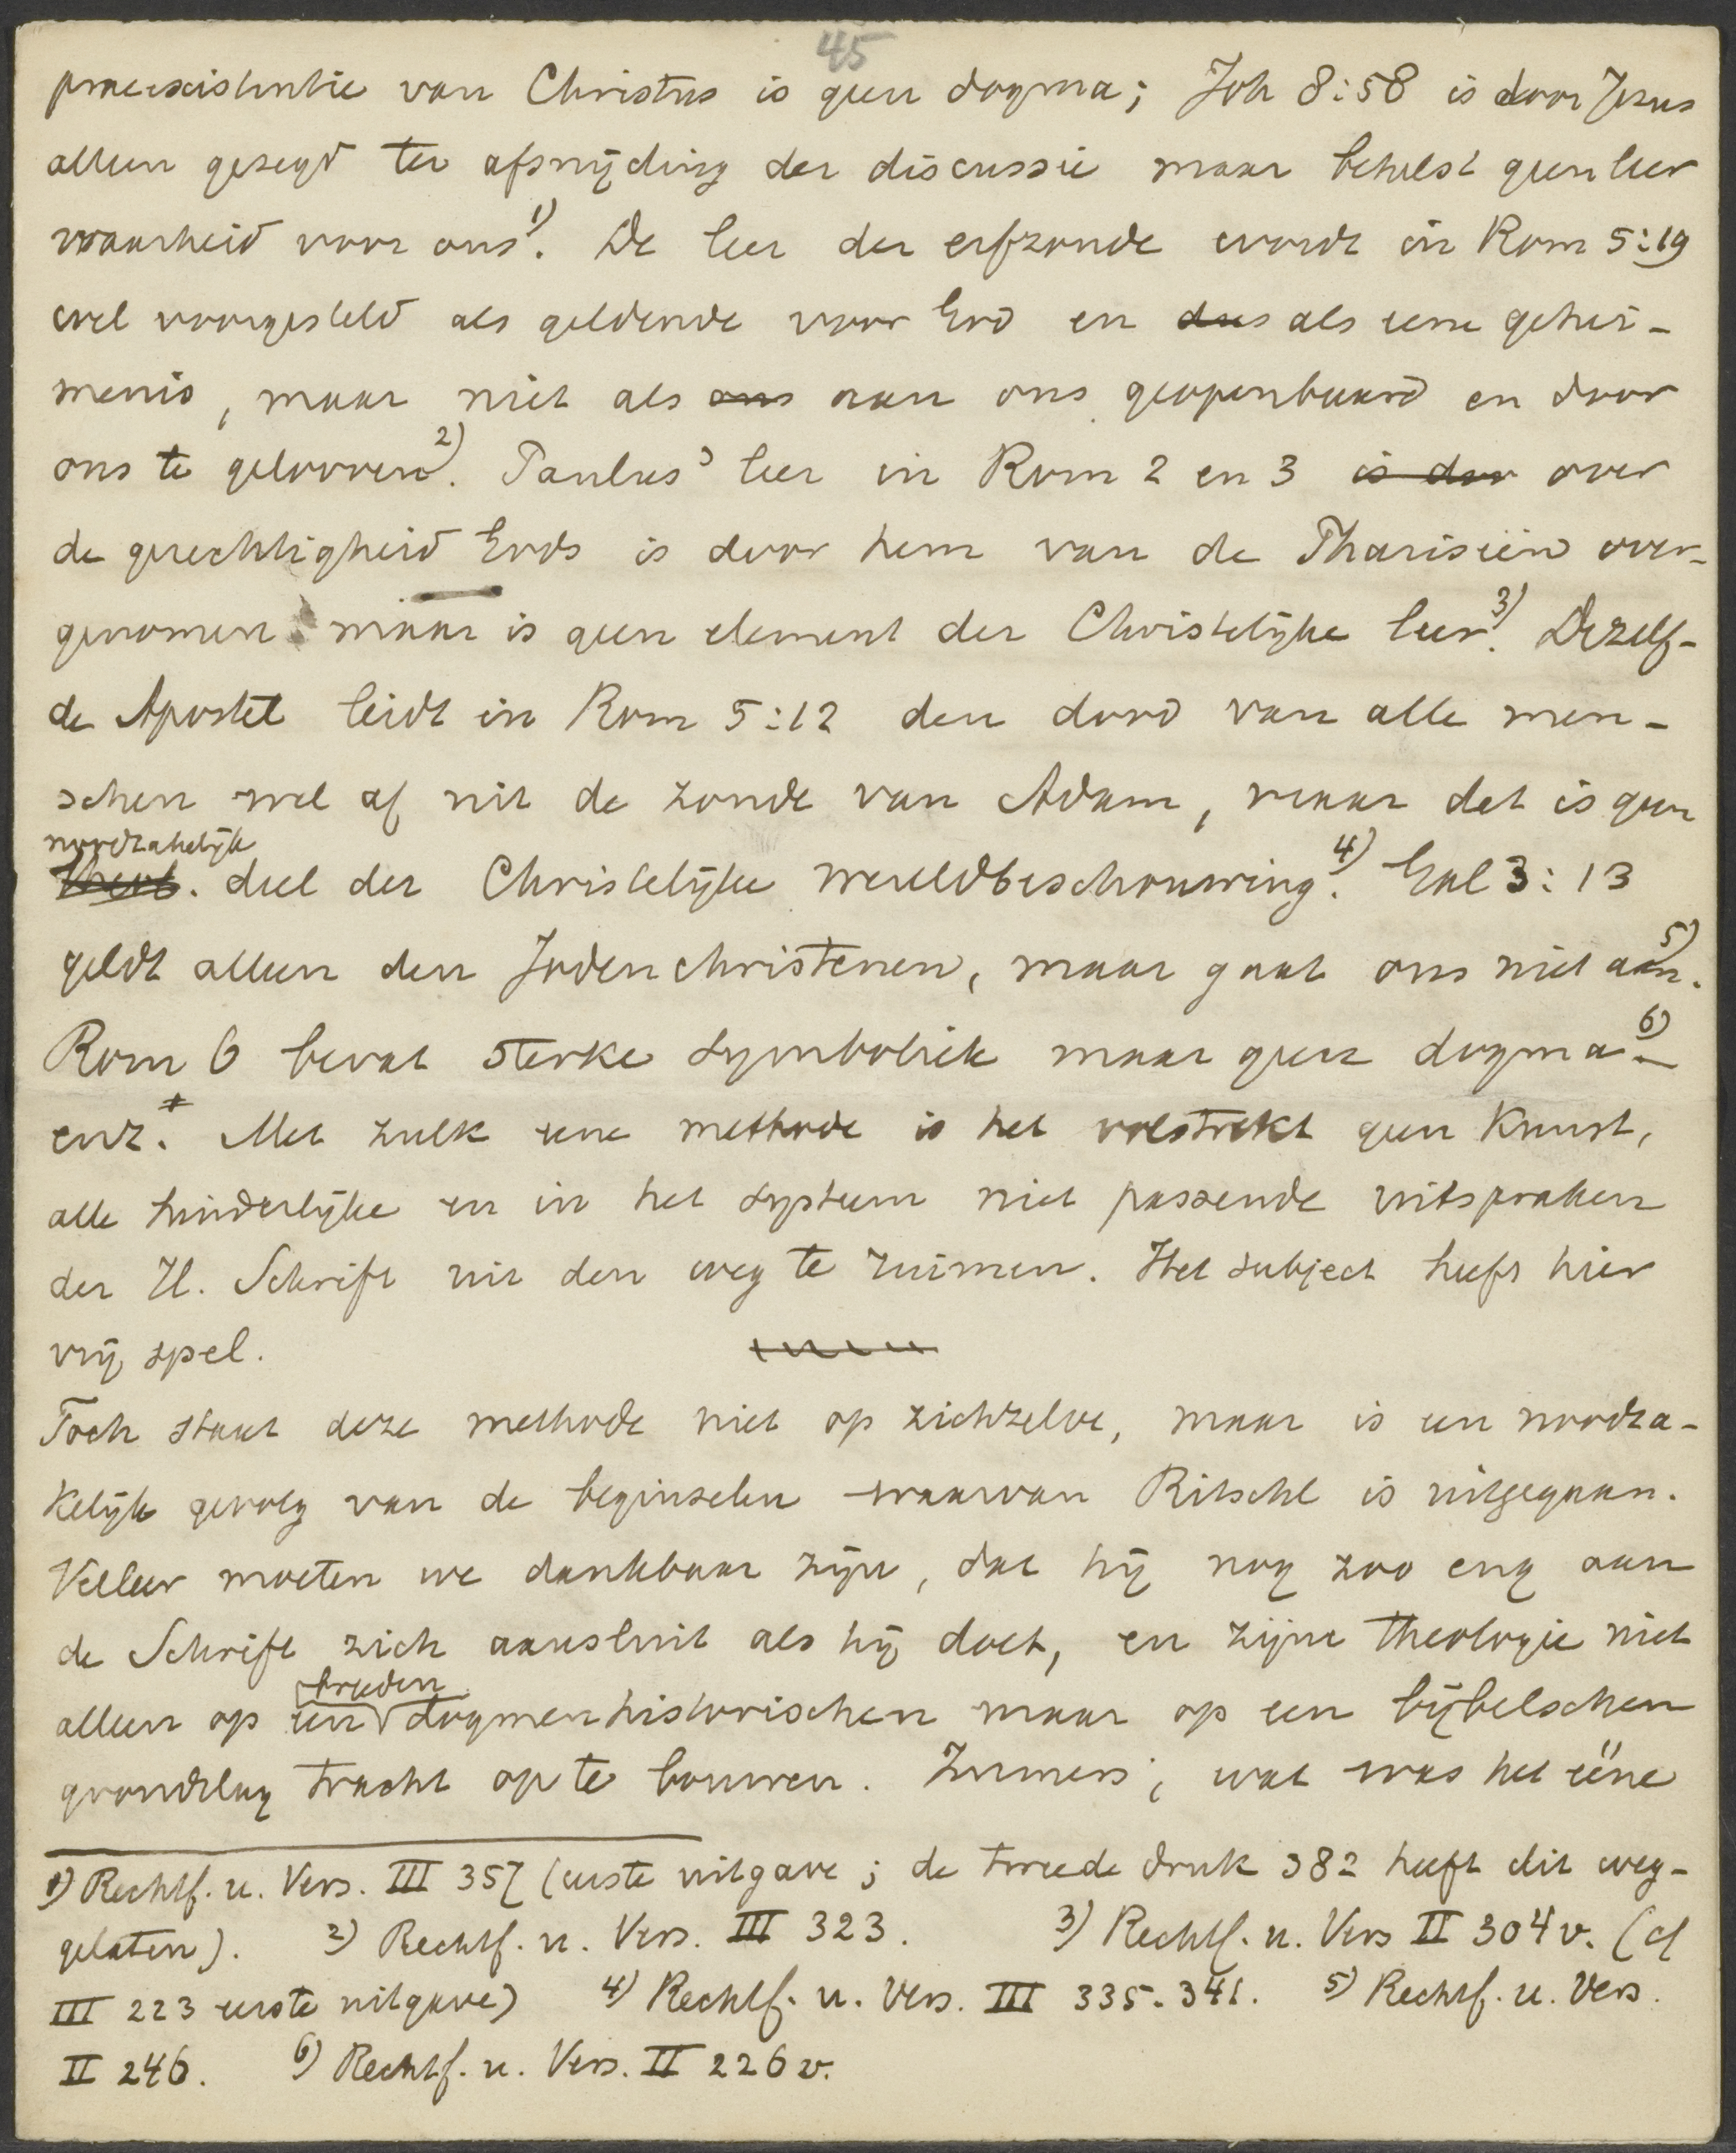 45
praeexistentie van Christus is geen dogma; Joh 8:58 is door Jezus
alleen gezegd ter afsnijding der discussie maar behelst geen leer
waarheid voor ons 1). De leer der erfzonde wordt in Rom 5:19
wel voorgesteld als geldende voor God en dus als eene gehei-
menis, maar niet als ons aan ons geopenbaard en door
ons te gelooven 2). Paulus' leer in Rom 2 en 3 is door over
de gerechtigheid Gods is door hem van de Phariseën over-
genomen maar is geen element der Christelijke leer 3). Dezelf-
de Apostel leidt in Rom 5:12 den dood van alle men-
schen wel af uit de zonde van Adam, maar det is geen
noodzakelijk
deel der Christelijke wereldbeschouwing. 4) Gal 3:13
geldt alleen den Jodenchristenen, maar gaat ons niet aan. 5)
Rom 6 bevat sterke symboliek maar geen dogma 6) –
enz. + Met zulk eene methode is het volstrekt geen kunst,
alle hinderlijke en in het systeem niet passende uitspraken
der H. Schrift uit den weg te ruimen. Het subject heeft hier
vrij spel.
Toch staat deze methode niet op zichzelve, maar is een noodza-
kelijk gevolg van de beginselen waarvan Ritschl is uitgegaan.
Veeleer moeten we dankbaar zijn, dat hij nog zoo eng aan
de Schrift zich aansluit als hij doet, en zijne theologie niet
breeden
alleen op een dogmenhistorischen maar op een bijbelschen
grondslag tracht op te bouwen. Immers, wat was het ééne
1) Rechtf. u. Vers. III 357 (eerste uitgave; de tweede druk 382 heeft dit weg-
gelaten). 2) Rechtf. u. Vers. III 323. 3) Rechtf. u. Vers II 304 v. (cf
III 223 eerste uitgave) 4) Rechtf. u. Vers. III 335-341. 5) Rechtf. u. Vers.
II 246. 6) Rechtf. u. Vers. II 226 v.